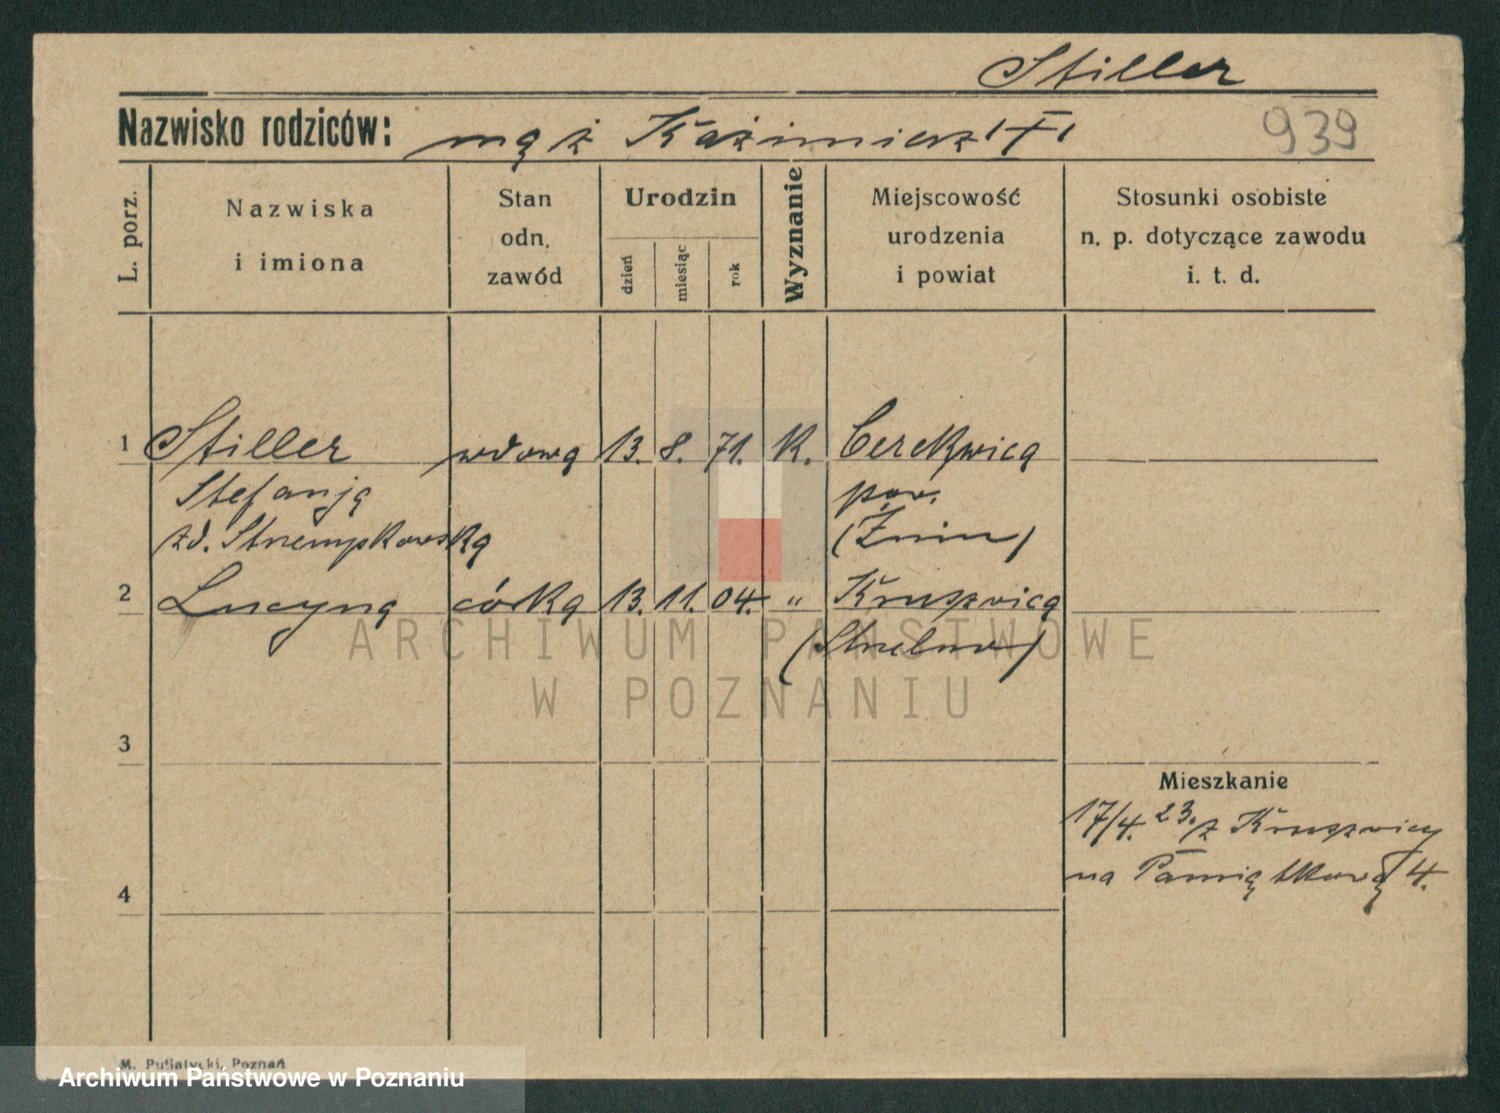 Stiller
Nazwisko rodziców: mąż Kaźimierz (+)
939
L. porz.
Nazwiska
i imiona
Stan
odn.
zawód
Urodzin
dzień
miesiąc
rok
Wyznanie
Miejscowość
urodzenia
i powiat
Stosunki osobiste
n. p. dotyczące zawodu
i. t. d.
1 Stiller wdowa 13. 8. 71. K. Cerekwica
Stefanja pow.
zd. Strzempkowska (Żnin)
2 Lucyna córka 13. 11. 04. " Kruszwica
(Strzelno)
3
Mieszkanie
17/4. 23. z Kruszwicy
na Pamiątkową 4.
4
M. Putiatycki, Poznań
ARCHIWUM PAŃSTWOWE
W POZNANIU
Archiwum Państwowe w Poznaniu